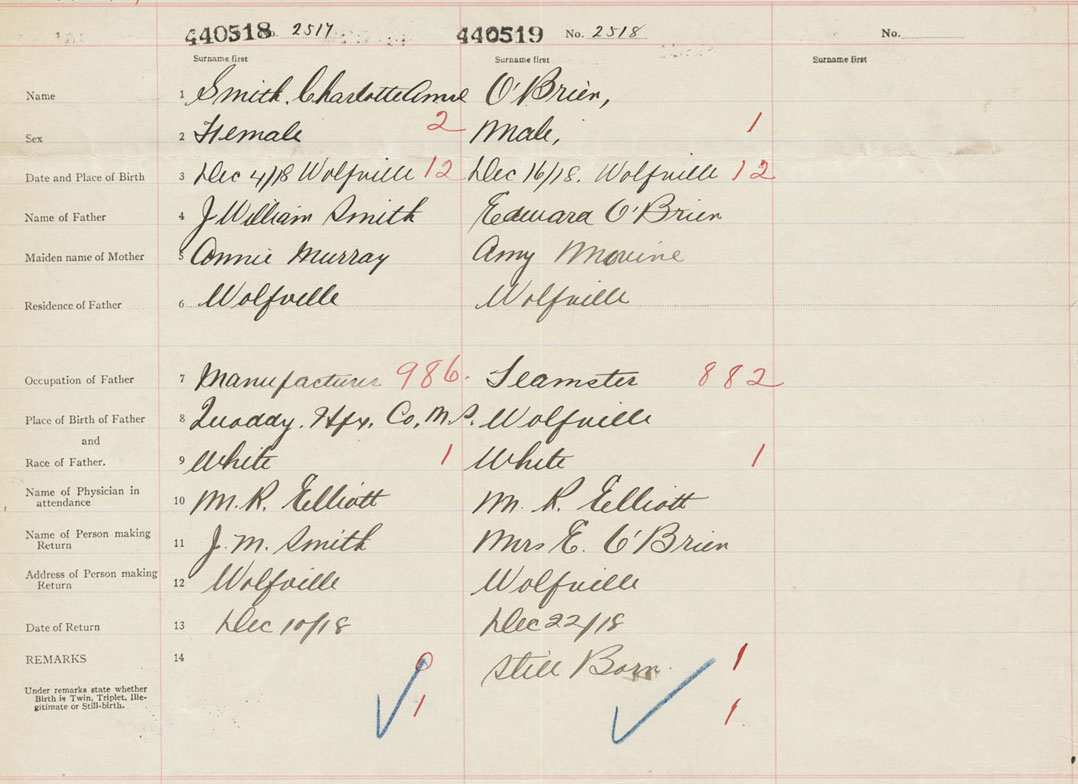 440518 No. 2517 440519 No. 2518 No.
Surname first Surname first Surname first
Name 1 Smith, Charlotte Annie O'Brien,
Sex 2 Female 2 Male, 1
Date and Place of Birth 3 Dec 4/18 Wolfville 12 Dec 16/18. Wolfville 12
Name of Father 4 J William Smith Edward O'Brien
Maiden name of Mother 5 Annie Murray Amy
Residence of Father 6 Wolfville Wolfville
Occupation of Father 7 Manufacturer 986. Teamster 882
Place of Birth of Father 8 Quoddy. Hfx. Co, N.S. Wolfville
and
Race of Father. 9 White 1 White 1
Name of Physician in
attendance 10 M. R. Elliott M. R. Elliott
Name of Person making
Return 11 J. M. Smith Mrs E. O'Brien
Address of Person making
Return 12 Wolfville Wolfville
Date of Return 13 Dec 10/18 Dec 22/18
REMARKS 14 0 Still Born. 1
Under remarks state whether
Birth is Twin, Triplet, Ille-
gitimate or Still-birth. 1 1